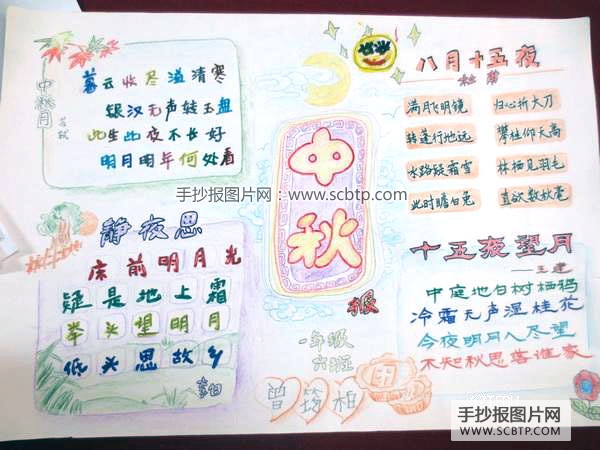 中秋月
苏轼
暮云收尽溢清寒
银汉无声转玉盘
此生此夜不长好
明月明年何处看
静夜思
床前明月光
疑是地上霜
举头望明月
低头思故乡
李白
中秋
报
一年级
六班
曾
团
八月十五夜
杜甫
满月飞明镜 归心折大刀
转蓬行地远 攀桂仰天高
水路疑霜雪 林栖见羽毛
此时瞻白兔 直欲数秋毫
十五夜望月
——王建
中庭地白树栖鸦
冷霜无声湿桂花
今夜明月人尽望
不知秋思落谁家
手抄报图片网：www.scbtp.com
手抄报图片网
WWW.SCBTP.COM